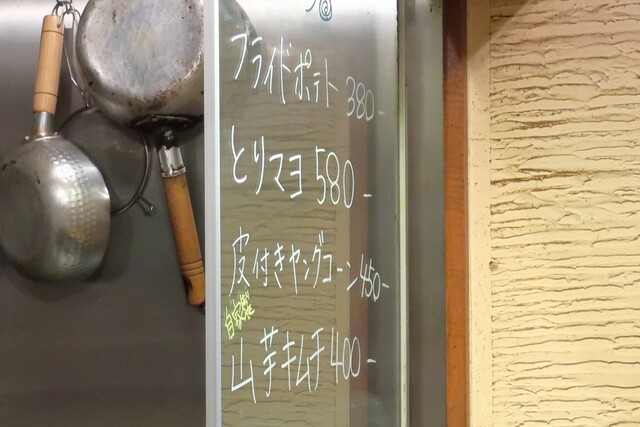 フライドポテト 380-
とりマヨ 580-
皮付きヤングコーン 450-
自家製
山芋キムチ 400-